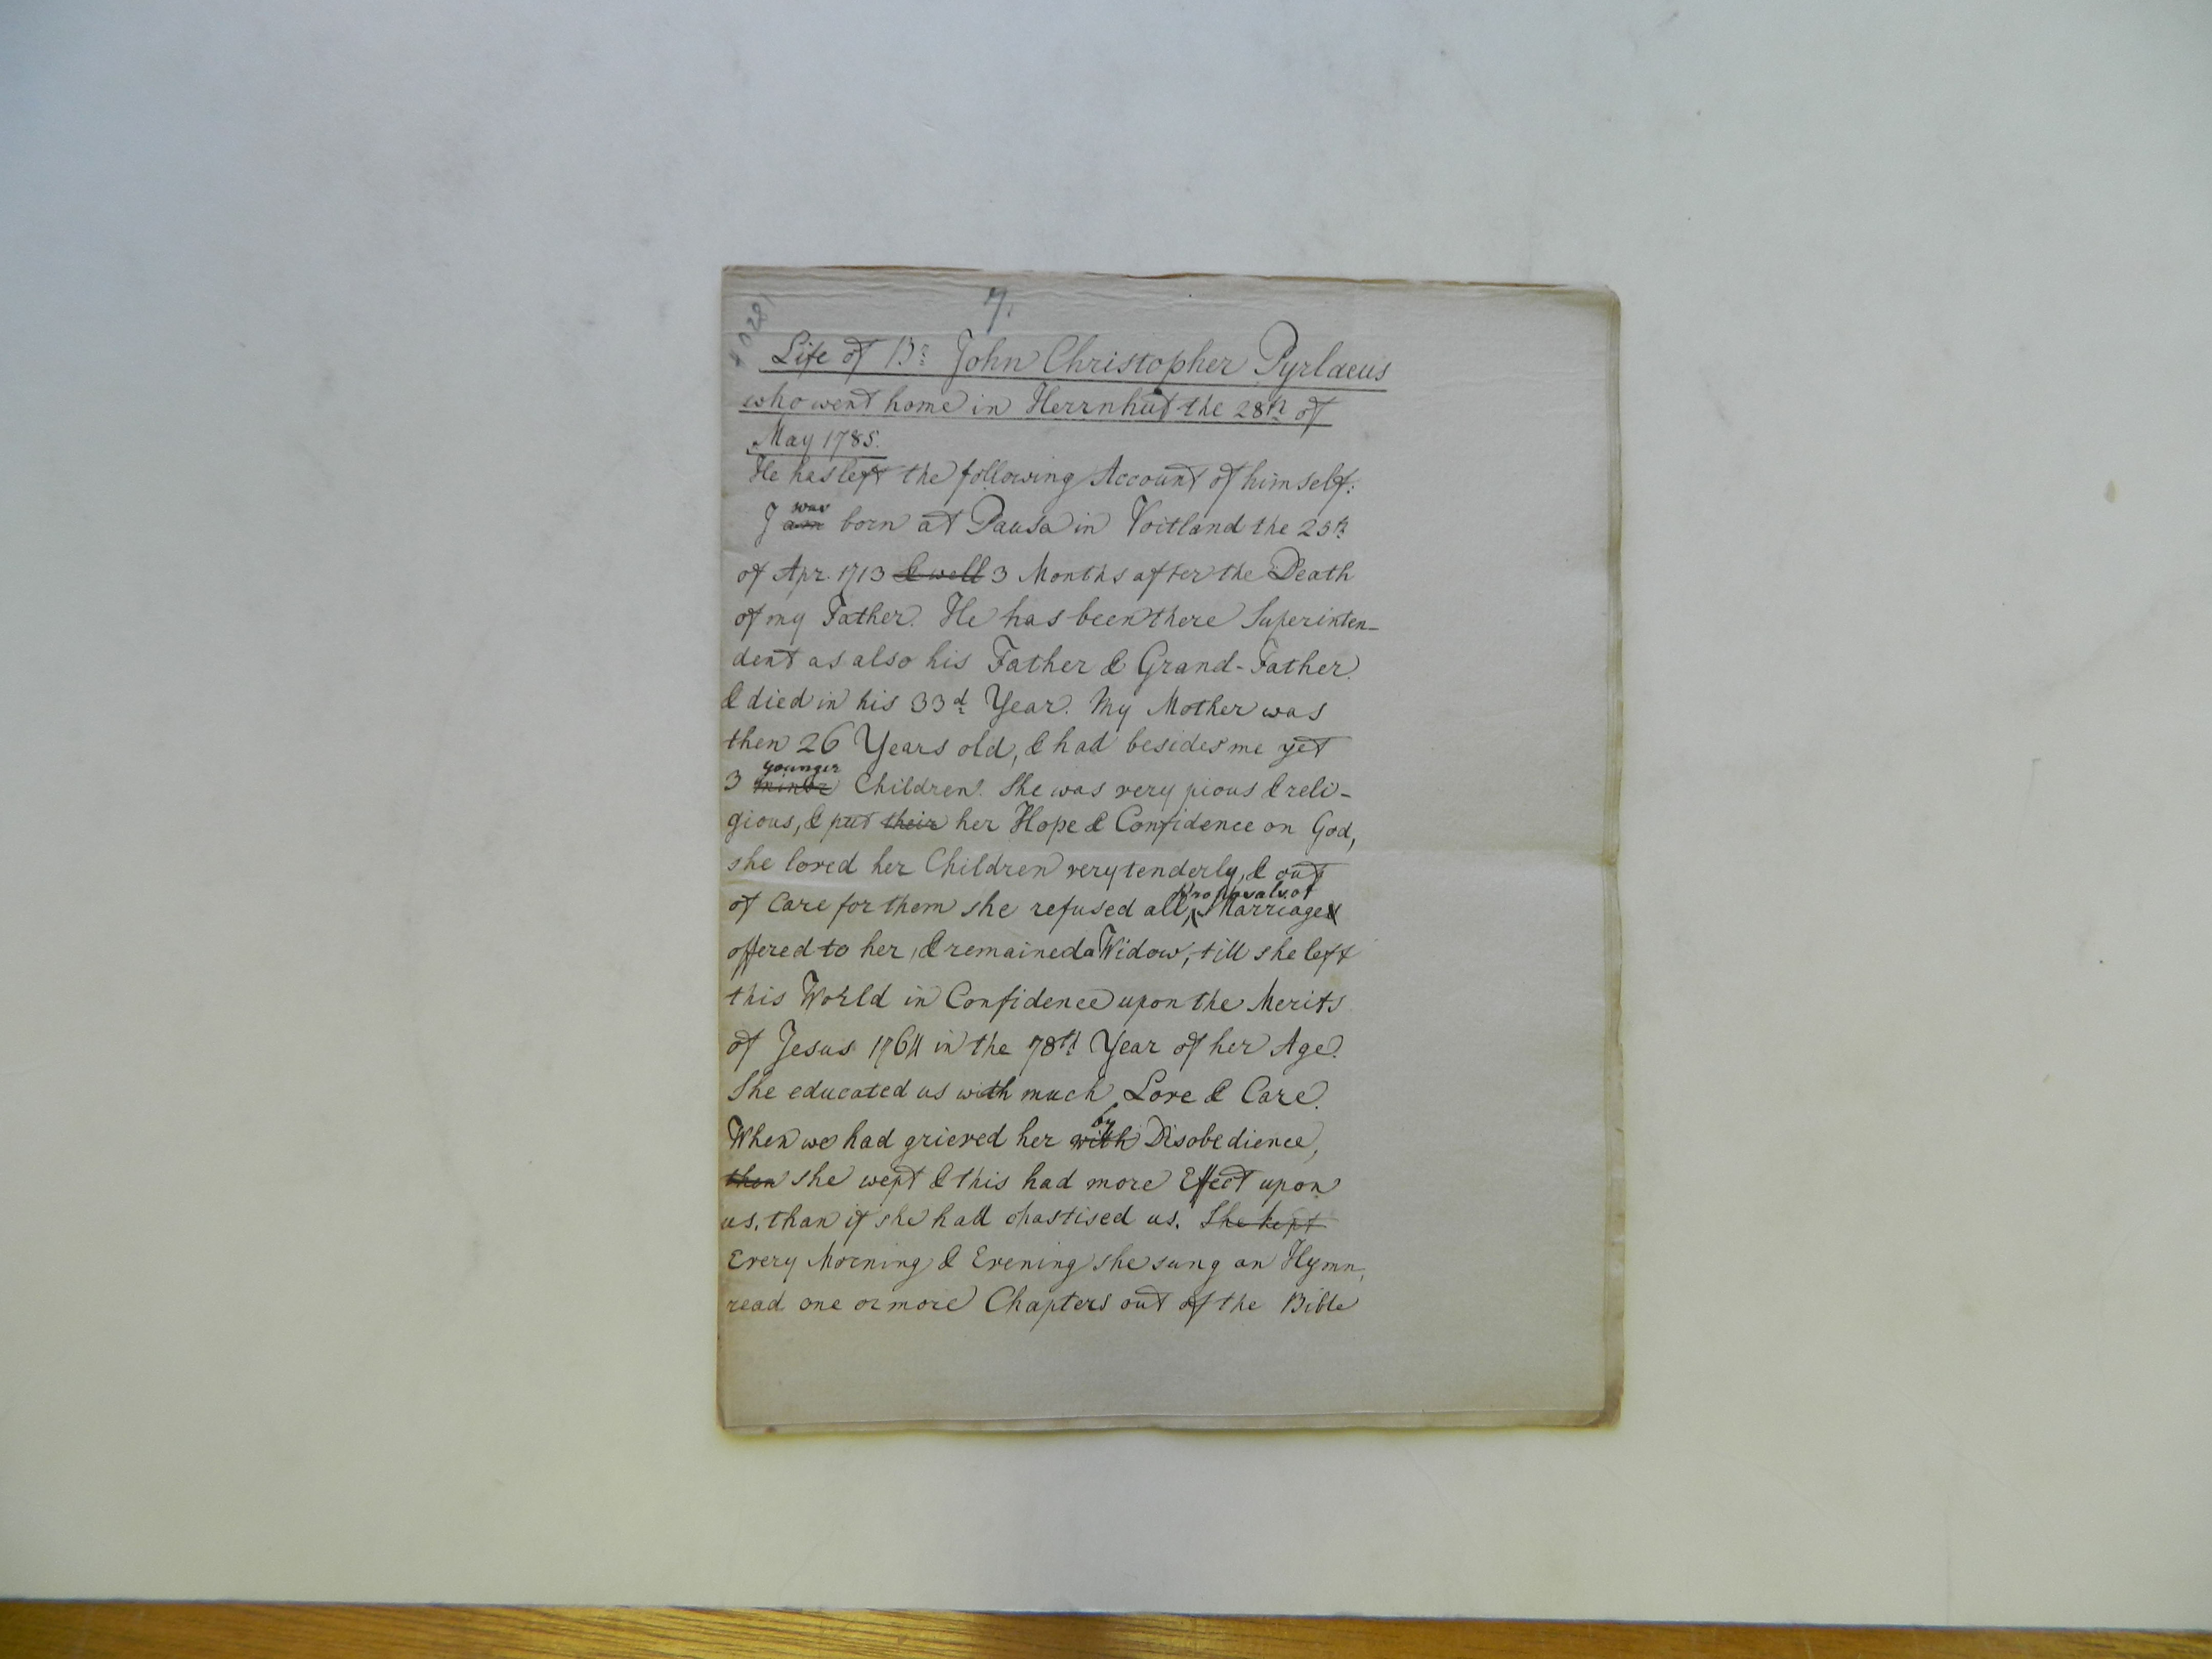 7.
Life of Br: John Christopher Pyrlaeus
who went home in Herrnhut the 28th of
May 1785.
He has left the following Account of himself:
I am was born at Pausa in Voitland the 25th
of Apr. 1713 & well 3 Months after the Death
of my Father. He has been there Superinten-
dent as also his Father & Grand-Father.
& died in his 33d Year. My Mother was
then 26 Years old, & had besides me yet
3 minor younger Children. She was very pious & reli-
gious, & put their her Hope & Confidence on God,
she loved her Children very tenderly, & out
of Care for them she refused all proposals of Marriages
offered to her, & remained a Widow, till she left
this World in Confidence upon the Merits
of Jesus 1764 in the 78th Year of her Age.
She educated us with much Love & Care.
When we had grieved her with by Disobedience,
then she wept & this had more Effect upon
us, than if she had chastised us. She kept
Every Morning & Evening she sung an Hymn,
read one or more Chapters out of the Bible